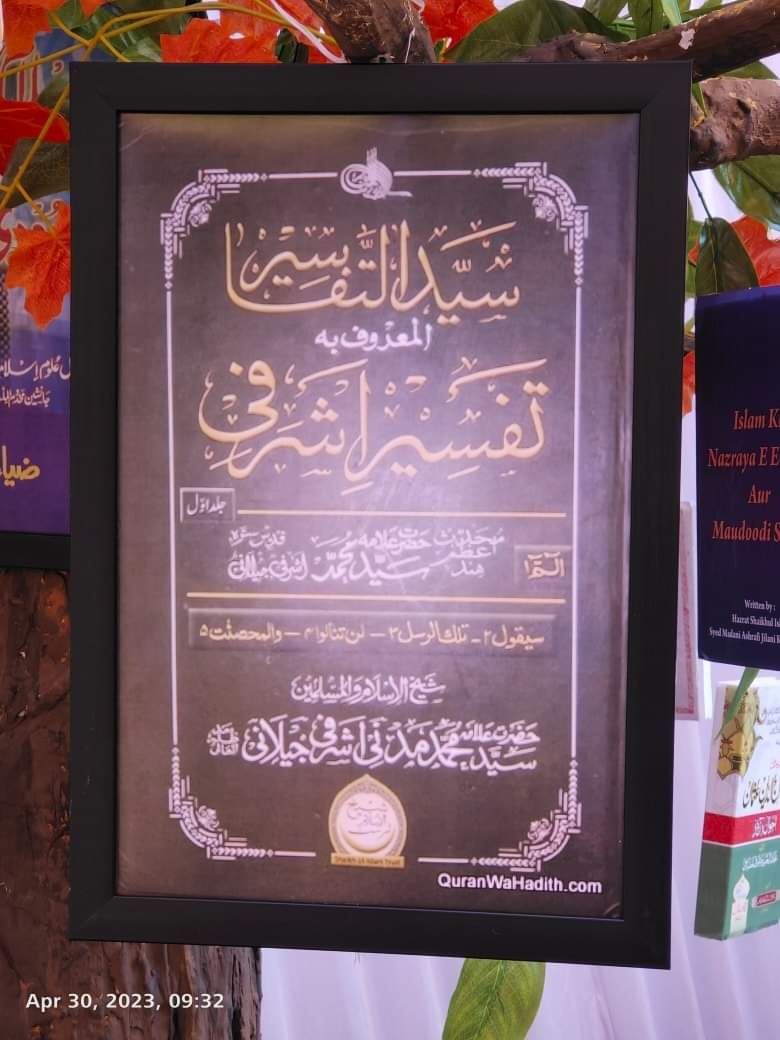 سیّد التّفاسیر
المعروف به
تفسیر اشرفی
جلد اوّل
محدّث اعظم ہند حضرت علامہ سیّد محمّد اشرفی جیلانی قدس سرہ
الٓمّٓ ۱
سیقول ۲ - تلك الرسل ۳ - لن تنالوا ۴ - والمحصنٰت ۵
شیخ الاسلام والمسلمین
حضرت علامہ سیّد محمّد مدنی اشرفی جیلانی
شیخ الاسلام ٹرسٹ
Shaikh-Ul-Islam Trust
QuranWaHadith.com
علوم اسلام
جانشین
ضیاء
Islam K
Nazraya E E
Aur
Maudoodi S
Written by :
Hazrat Shaikhul Isl
Syed Madani Ashrafi Jilani K
Apr 30, 2023, 09:32